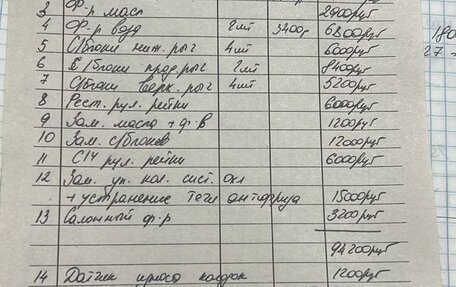 3 Ф-р масл 2900руб
4 Ф-р возд 2шт 3400р 6800руб
5 С/блоки ниж. рыч 4шт 6000руб
6 С/блоки прод. рыч 2шт 8400руб
7 С/блоки верх. рыч 4шт 5200руб
8 Рест. рул. рейки 6000руб
9 Зам. масла + ф-в 1200руб
10 Зам. с/блоков 12000руб
11 С/У рул. рейки 6000руб
12 Зам. уп. кол. сист. охл
+ устранение течи антифриза 15000руб
13 Салонный ф-р 3200руб
94200руб
14 Датчик износа колодок 1200руб
180
27